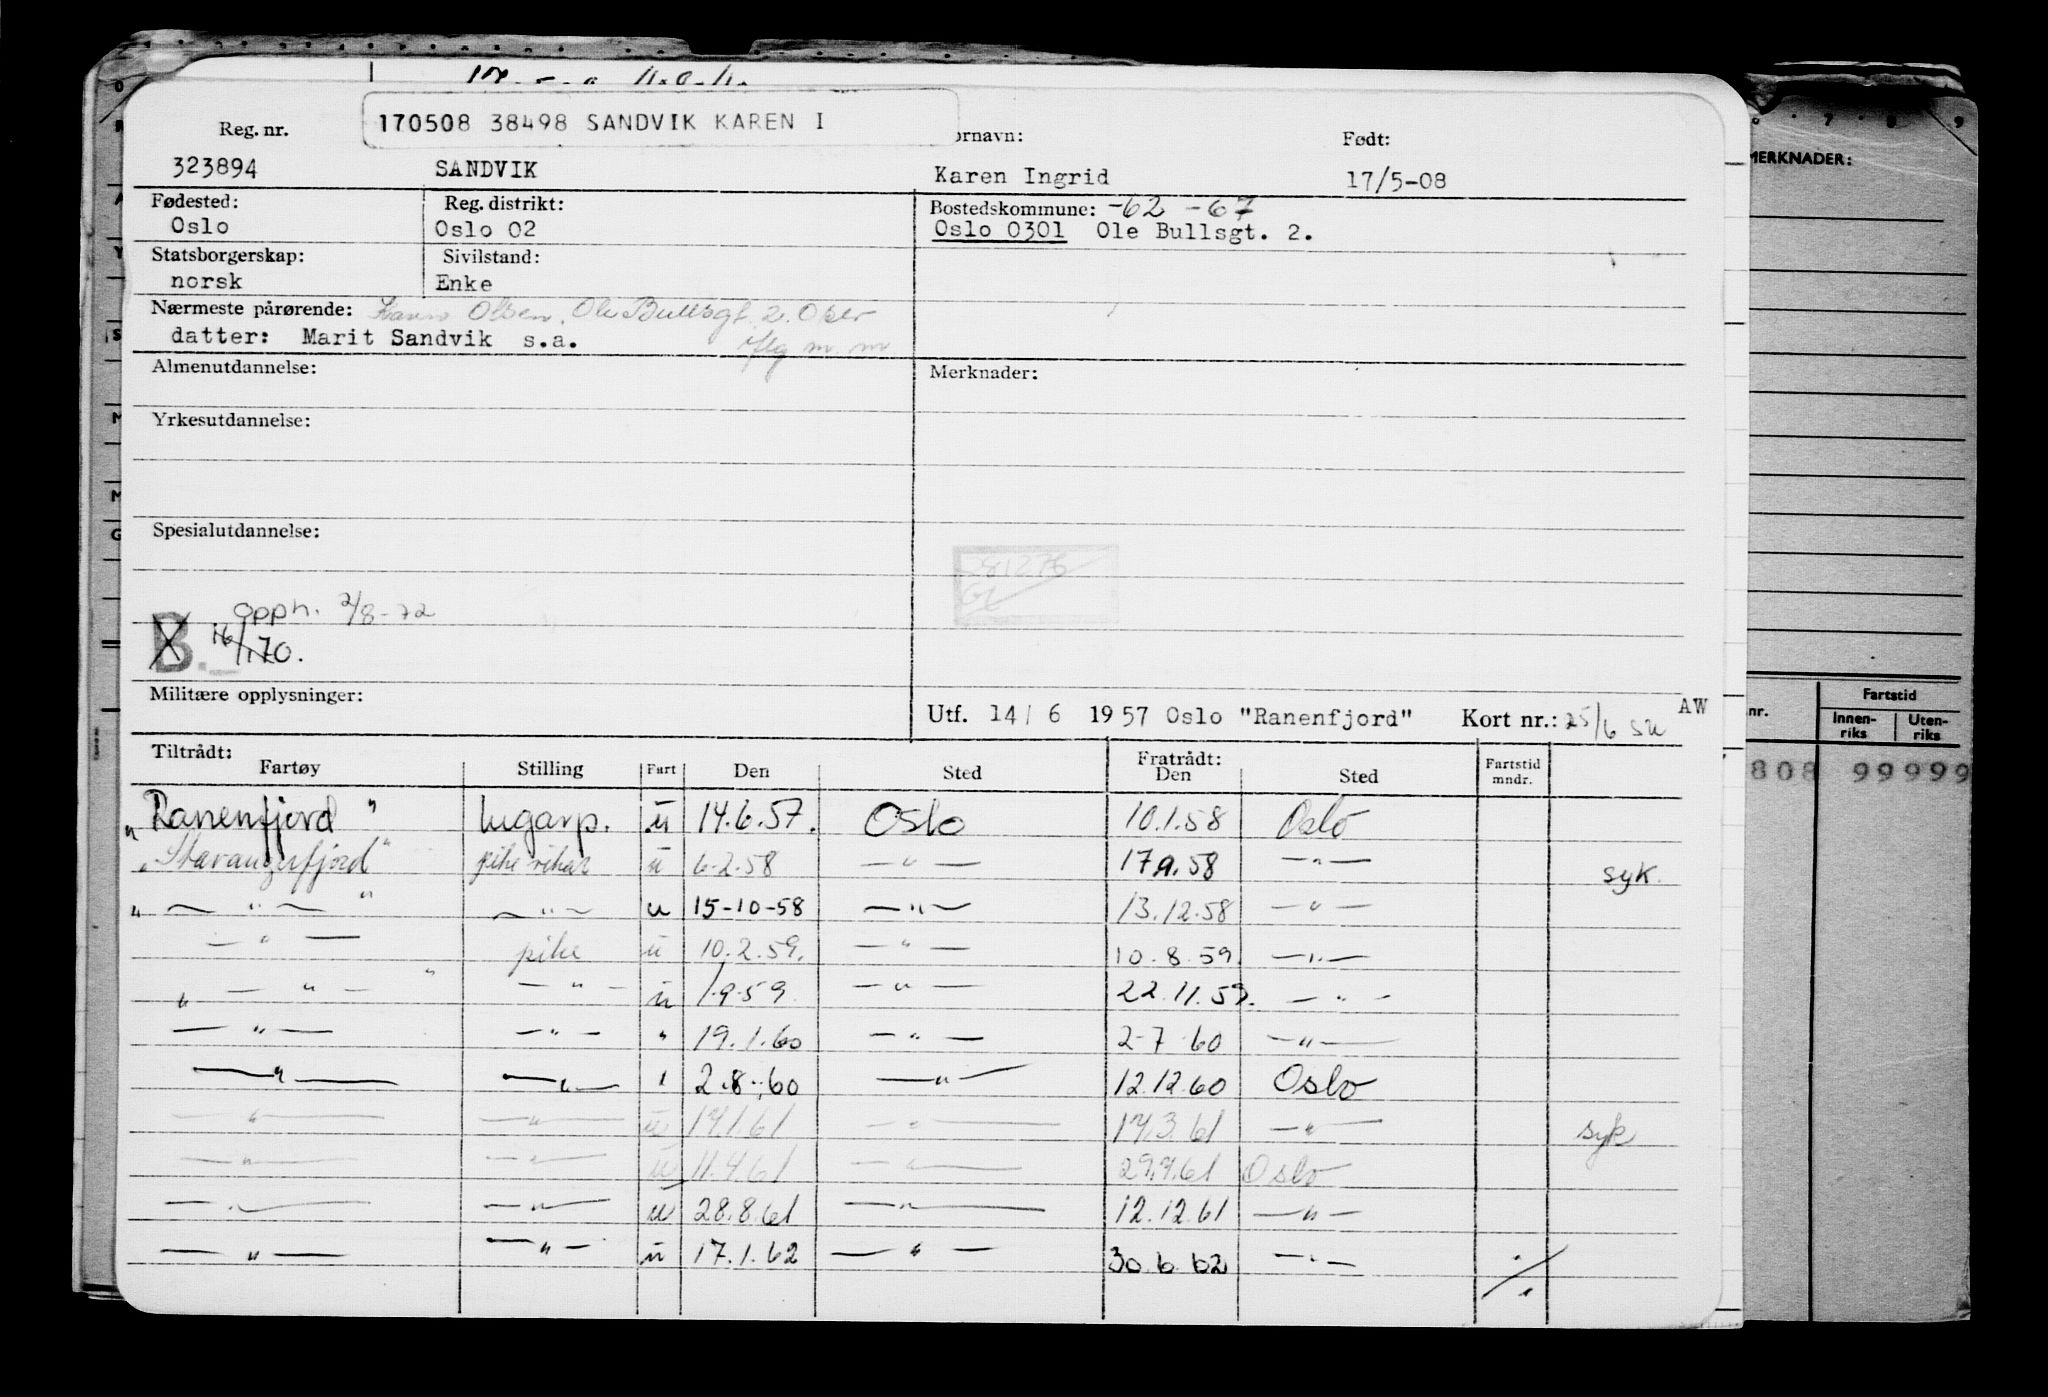 170508 38498 SANDVIK KAREN I
Reg. nr. ornavn: Født:
323894 SANDVIK Karen Ingrid 17/5-08
Fødested: Reg. distrikt: Bostedskommune: -62 -67
Oslo Oslo 02 Oslo 0301 Ole Bullsgt. 2.
Statsborgerskap: Sivilstand:
norsk Enke
Nærmeste pårørende: Olsen, Ole Bullsgt. 2. Oslo
datter: Marit Sandvik s.a.
Almenutdannelse: Merknader:
Yrkesutdannelse:
Spesialutdannelse:
opph. 2/8-72
B. 16/1 70.
Militære opplysninger:
Utf. 14/ 6 1957 Oslo "Ranenfjord" Kort nr.: 25/6 AW
Tiltrådt: Fratrådt:
Fartøy Stilling Fart Den Sted Den Sted Fartstid mndr.
"Ranenfjord" lugarp. u 14.6.57. Oslo 10.1.58 Oslo
"Stavangerfjord" pike vikar u 6-2-58 — " — 17.9.58 — " — syk.
" — " — " — " — u 15-10-58 — " — 13.12.58 — " —
— " — pike u 10.2.59. — " — 10.8.59. — " —
" — " — " — " — u 1-9-59 — " — 22.11.59. — " —
— " — — " — " 19.1.60 — " — 2-7 60 — " —
— " — — " — " 2.8.60 — " — 12.12.60 Oslo
— " — — " — u 17.1.61 — " — 17.3.61 — " — syk
— " — — " — u 11.4.61 — " — 29.7.61 Oslo
— " — — " — u 28.8.61 — " — 12.12.61 — " —
— " — — " — u 17.1.62 — " — 30.6.62 — " — ./.
7 8 9
MERKNADER:
nr. Fartstid
Innen-riks Uten-riks
808 99999